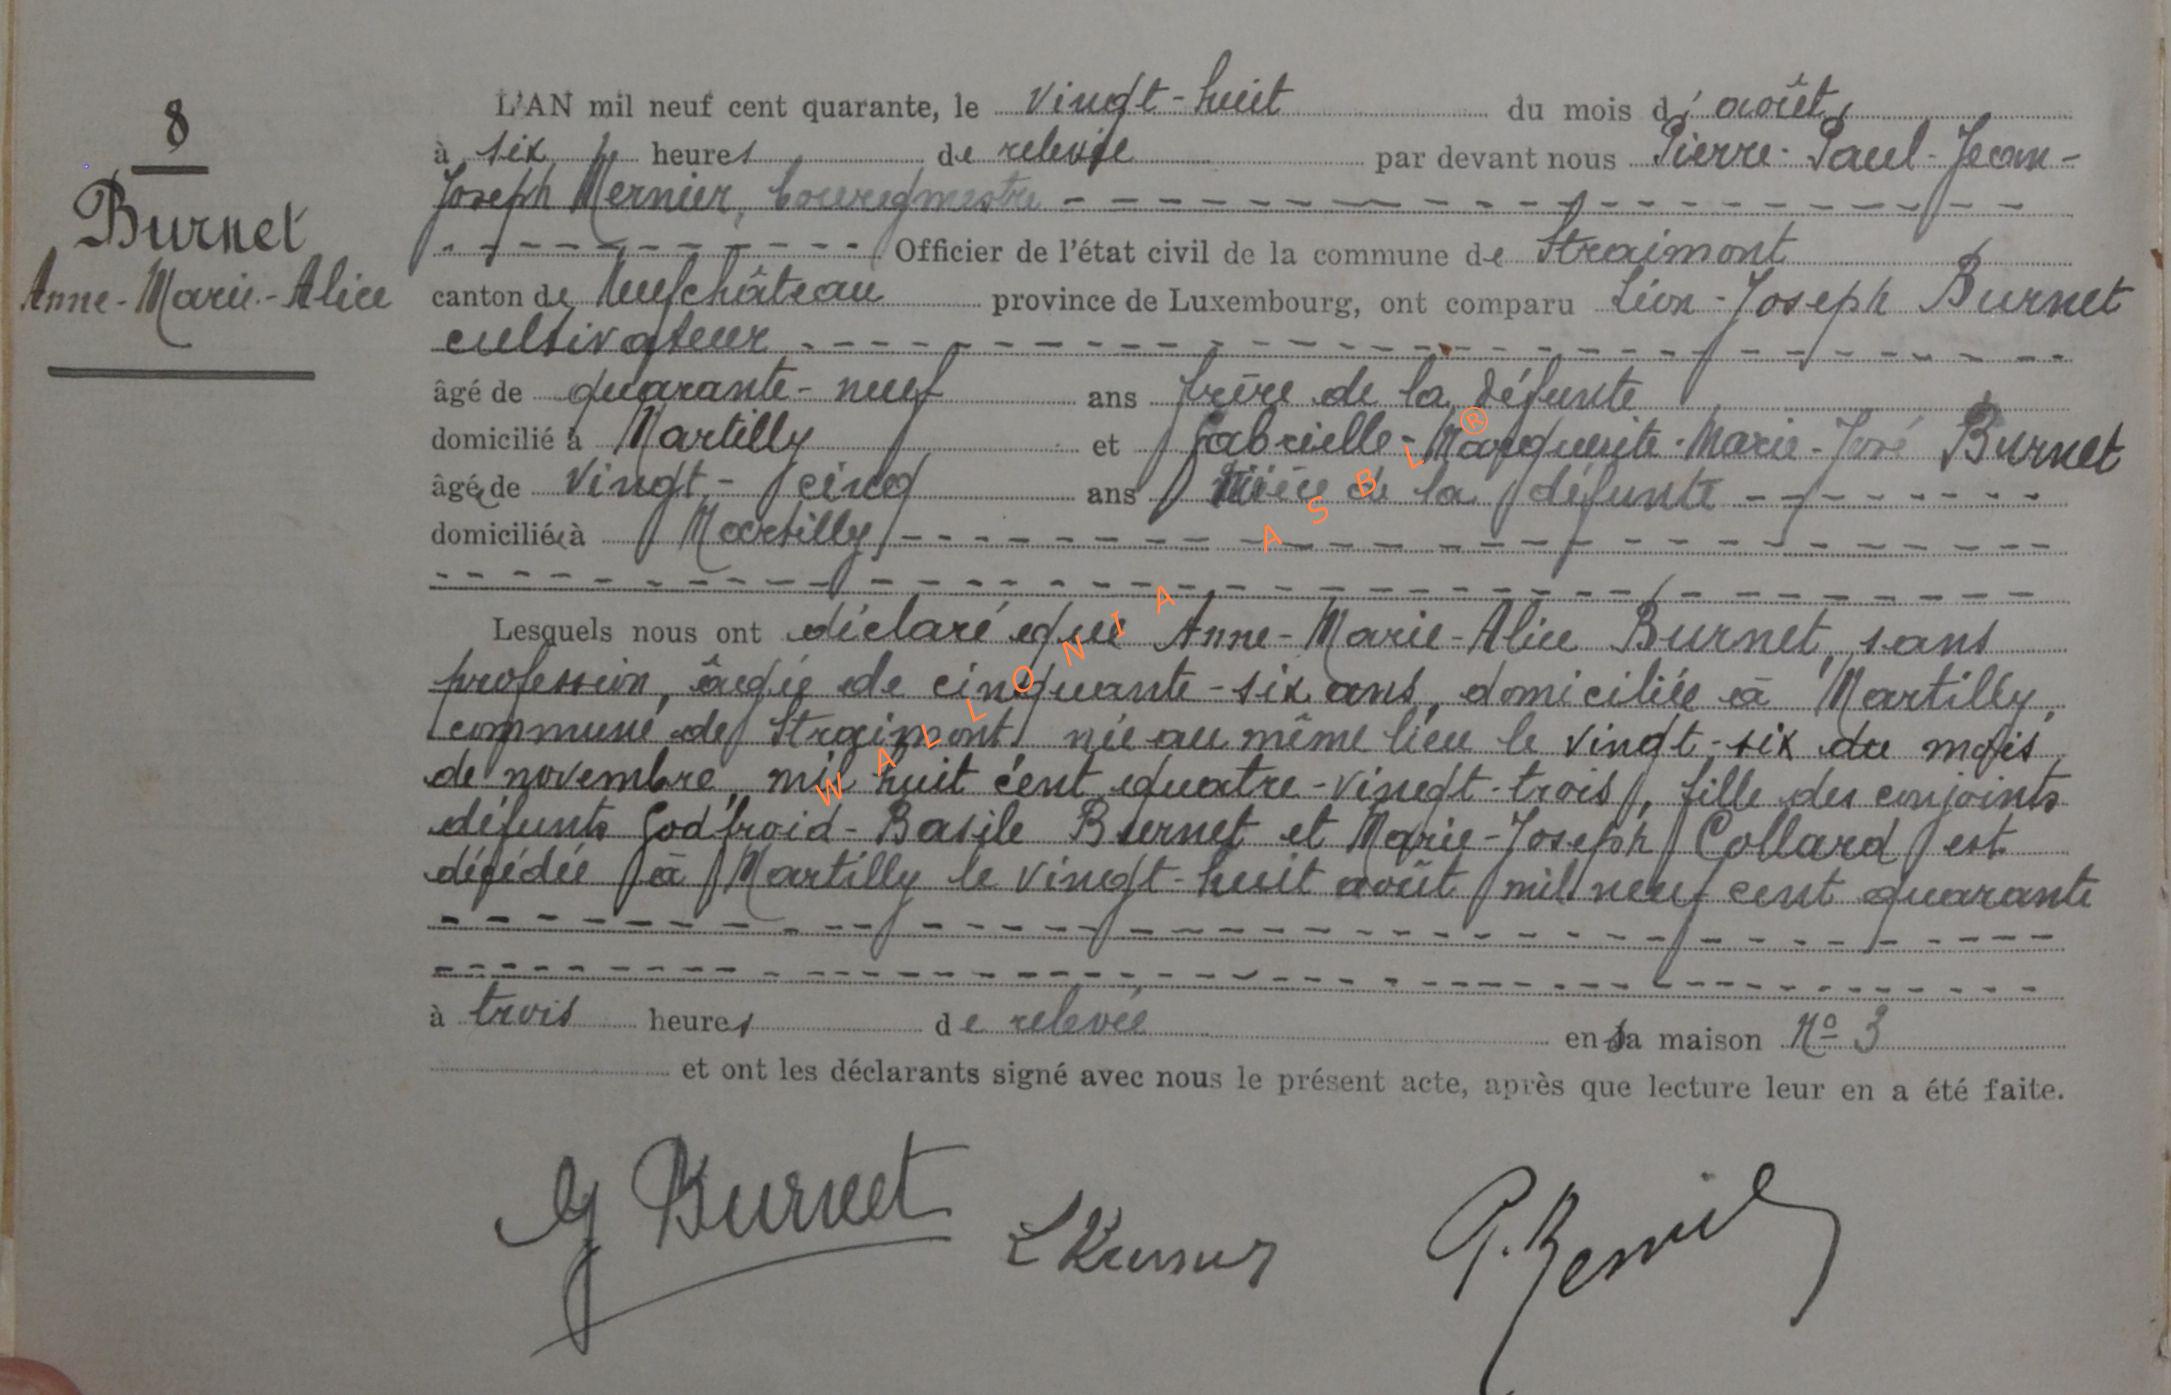 8
Burnet
Anne-Marie-Alice
L'AN mil neuf cent quarante, le vingt-huit du mois d'août,
à six heures de relevée par devant nous Pierre-Paul-Jean-
Joseph Mernier, bourgmestre
Officier de l'état civil de la commune de Straimont
canton de Neufchâteau province de Luxembourg, ont comparu Léon-Joseph Burnet
cultivateur
âgé de quarante-neuf ans frère de la défunte
domicilié à Martilly et Gabrielle-Marguerite-Marie-José Burnet
âgée de vingt-cinq ans nièce de la défunte
domiciliée à Martilly
Lesquels nous ont déclaré que Anne-Marie-Alice Burnet, sans
profession, âgée de cinquante-six ans, domiciliée à Martilly,
commune de Straimont née au même lieu le vingt-six du mois
de novembre, mil huit cent quatre-vingt-trois, fille des conjoints
défunts Godfroid-Basile Burnet et Marie-Joseph Collard est
décédée à Martilly le vingt-huit août mil neuf cent quarante
à trois heures de relevée en sa maison No 3
et ont les déclarants signé avec nous le présent acte, après que lecture leur en a été faite.
G Burnet
WALLONIA ASBL ®